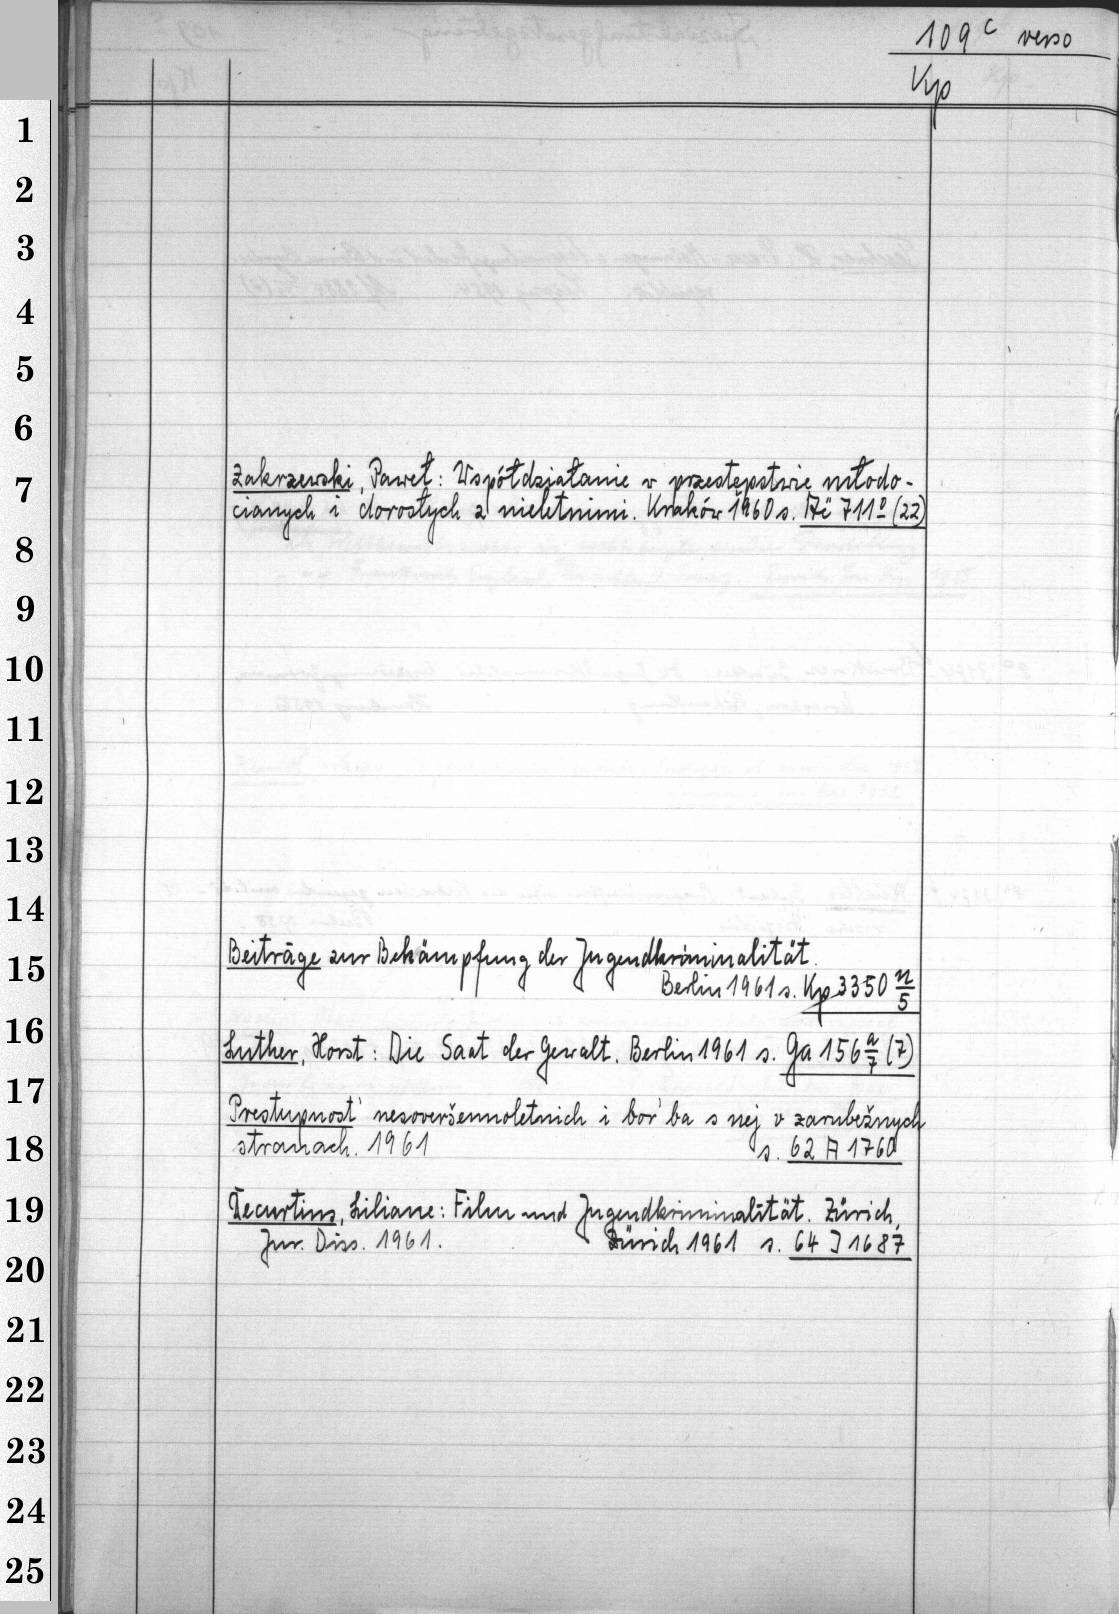 109 c verso
Kp
1
2
3
4
5
6
7
8
9
10
11
12
13
14
15
16
17
18
19
20
21
22
23
24
25
Zakrzewski, Paweł: Współdziałanie w przestępstwie młodo-
cianych i dorosłych z nieletnimi. Kraków 1960 s. Ac 711º (22)
Beiträge zur Bekämpfung der Jugendkriminalität.
Berlin 1961 s. Kp 3350 n/5
Luther, Horst: Die Saat der Gewalt. Berlin 1961 s. Ga 156 a/7 (7)
Prestupnost' nesoveršennoletnich i bor'ba s nej v zarubežnych
stranach. 1961 s. 62 A 1760
Decurtins, Liliane: Film und Jugendkriminalität. Zürich,
Jur. Diss. 1961. Zürich 1961 s. 64 J 1687